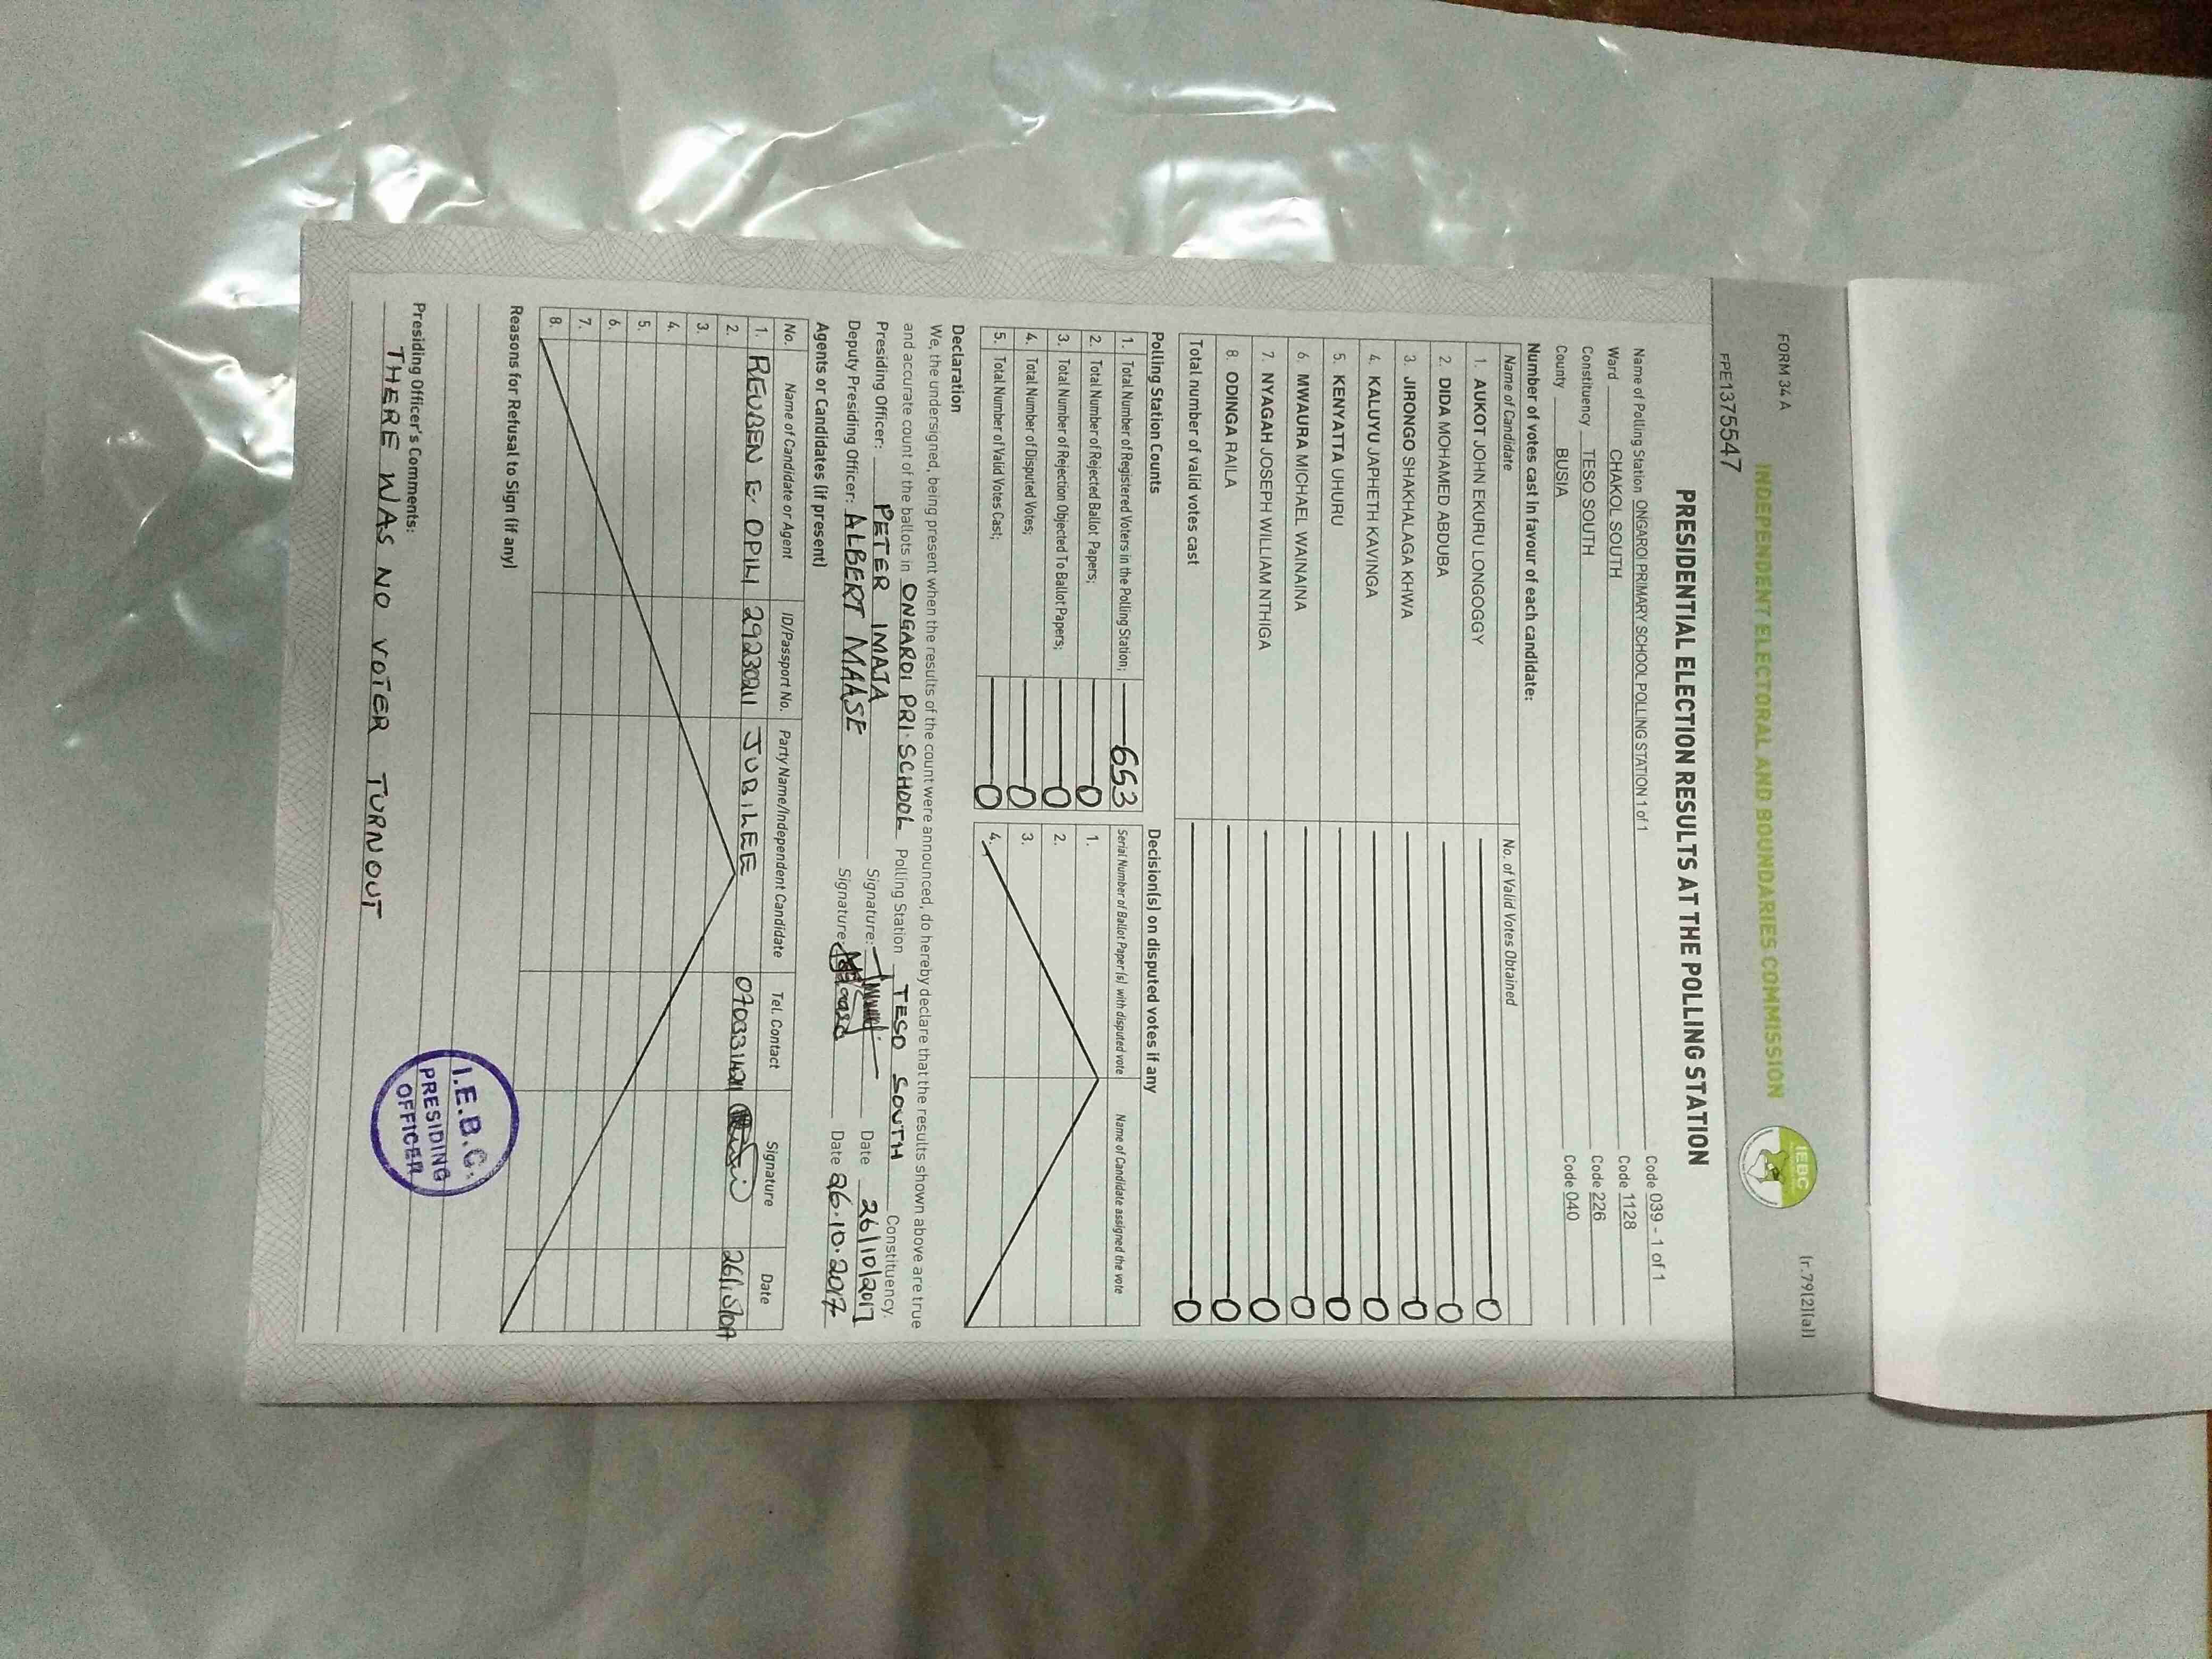 FORM 34 A
(r.79(2)(a))
INDEPENDENT ELECTORAL AND BOUNDARIES COMMISSION
IEBC
FPE1375547
PRESIDENTIAL ELECTION RESULTS AT THE POLLING STATION
Name of Polling Station ONGAROI PRIMARY SCHOOL POLLING STATION 1 of 1 Code 039 - 1 of 1
Ward CHAKOL SOUTH Code 1128
Constituency TESO SOUTH Code 226
County BUSIA Code 040
Number of votes cast in favour of each candidate:
Name of Candidate No. of Valid Votes Obtained
1. AUKOT JOHN EKURU LONGOGGY 0
2. DIDA MOHAMED ABDUBA 0
3. JIRONGO SHAKHALAGA KHWA 0
4. KALUYU JAPHETH KAVINGA 0
5. KENYATTA UHURU 0
6. MWAURA MICHAEL WAINAINA 0
7. NYAGAH JOSEPH WILLIAM NTHIGA 0
8. ODINGA RAILA 0
Total number of valid votes cast 0
Polling Station Counts
1. Total Number of Registered Voters in the Polling Station; 653
2. Total Number of Rejected Ballot Papers; 0
3. Total Number of Rejection Objected To Ballot Papers; 0
4. Total Number of Disputed Votes; 0
5. Total Number of Valid Votes Cast; 0
Decision(s) on disputed votes if any
Serial Number of Ballot Paper(s) with disputed vote Name of Candidate assigned the vote
1.
2.
3.
4.
Declaration
We, the undersigned, being present when the results of the count were announced, do hereby declare that the results shown above are true
and accurate count of the ballots in ONGAROI PRI. SCHOOL Polling Station TESO SOUTH Constituency.
Presiding Officer: PETER IMAJA Signature: Date 26/10/2017
Deputy Presiding Officer: ALBERT MAASE Signature: Date 26.10.2017
Agents or Candidates (if present)
No. Name of Candidate or Agent ID/Passport No. Party Name/Independent Candidate Tel. Contact Signature Date
1. REUBEN E OPILI 29230211 JUBILEE
2.
3.
4.
5.
6.
7.
8.
Reasons for Refusal to Sign (if any)
Presiding Officer's Comments:
THERE WAS NO VOTER TURNOUT
I.E.B.C.
PRESIDING
OFFICER